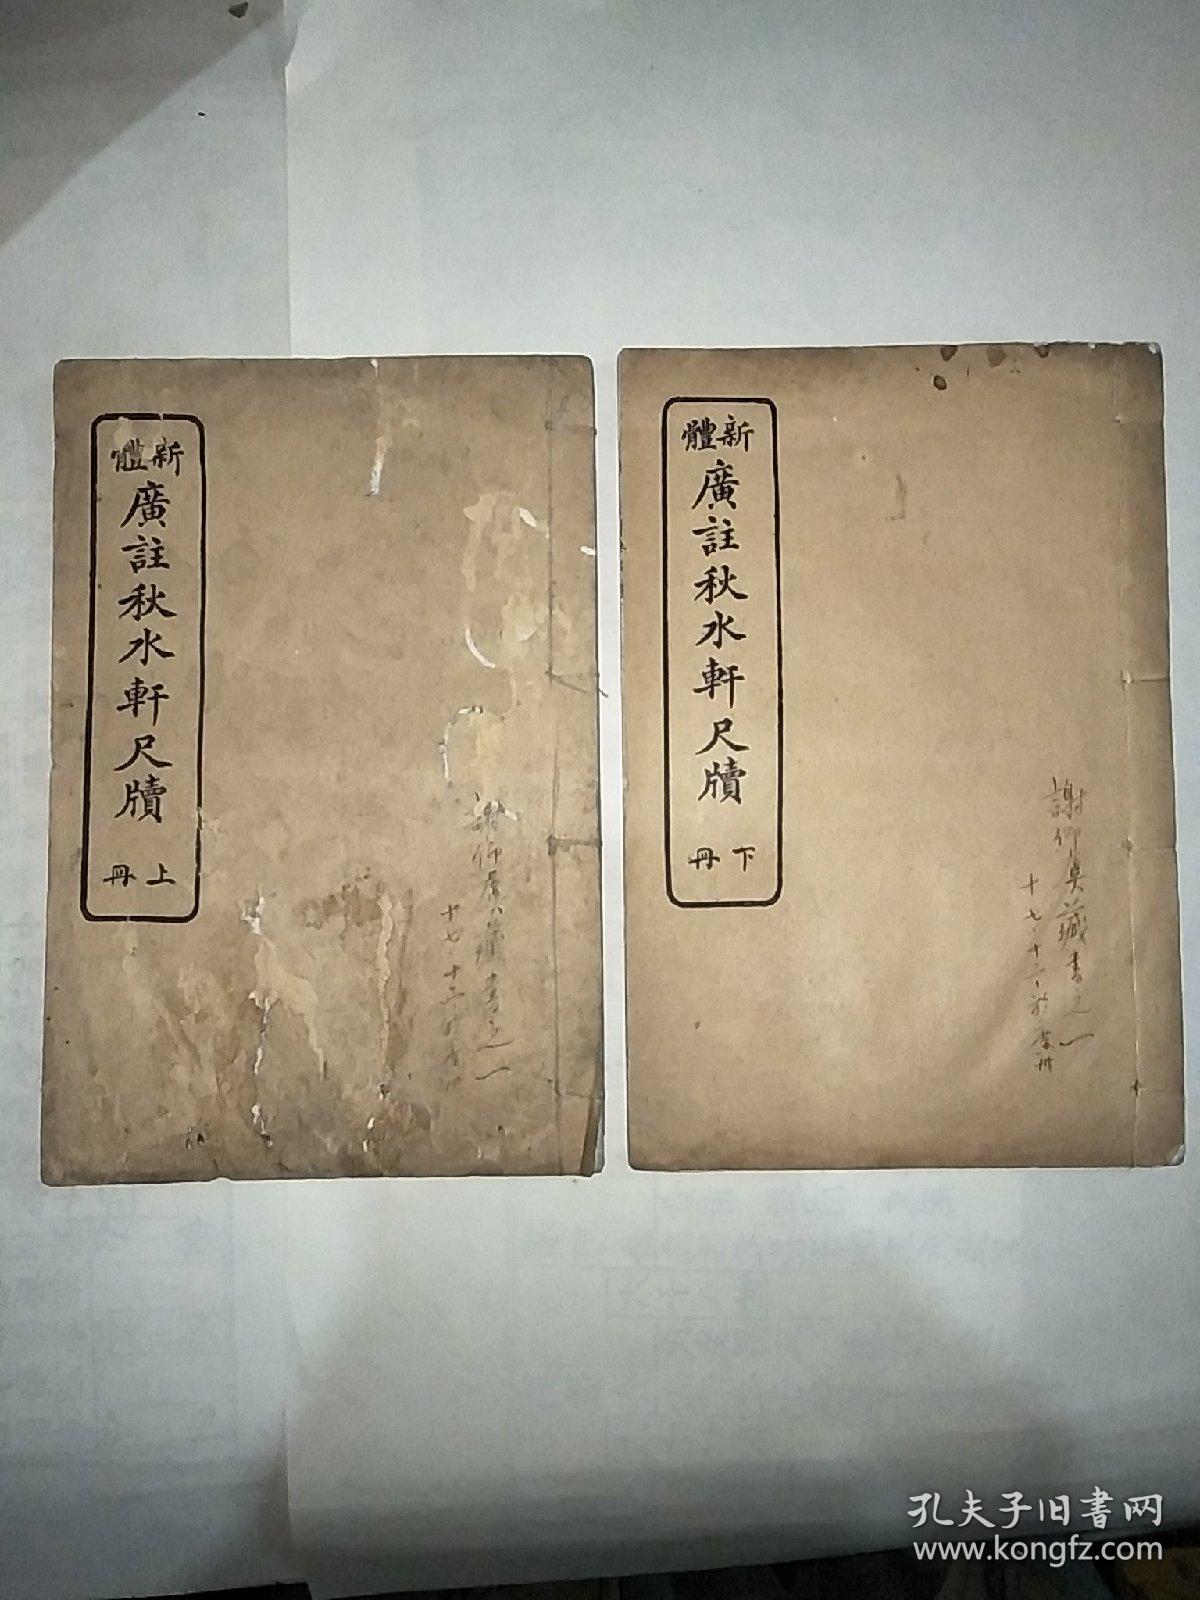 新體
廣註秋水軒尺牘
上冊
藏書之一
新體
廣註秋水軒尺牘
下冊
謝仰奐藏書之一
十七、十二、於
孔夫子旧书网
www.kongfz.com